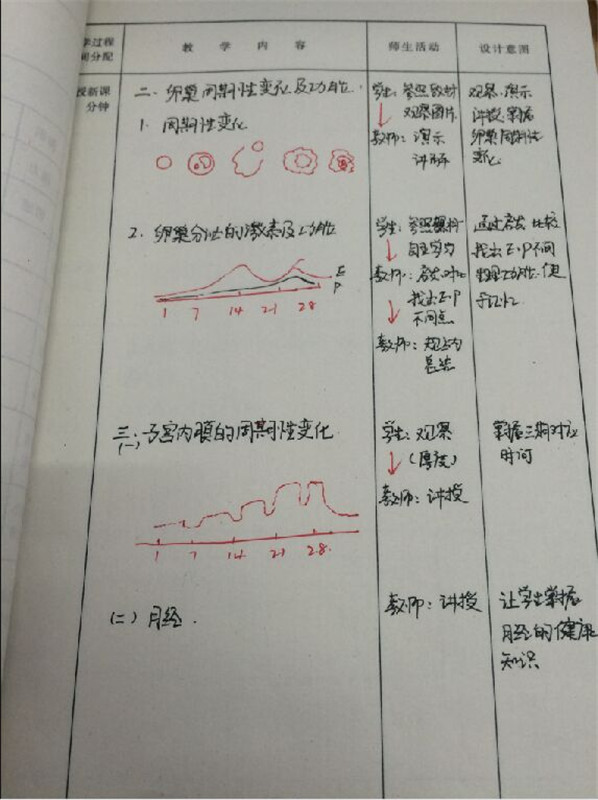 学过程 教 学 内 容 师生活动 设计意图
间分配
授新课 二、卵巢周期性变化及功能. 学生: 参照教材 观察、演示
分钟 观察图片 讲授、掌握
1. 周期性变化 教师: 演示 卵巢周期性
讲解 变化
2. 卵巢分泌的激素及功能 学生: 参照 通过启发、比较
自主学习 找出E、P不同
E 教师: 启发对比 生理功能,便
P 找出E、P 于记忆
1 7 14 21 28 不同点
教师: 规占内
总结
三、子宫内膜的周期性变化 学生: 观察 掌握三期对应
(一) (厚度) 时间
教师: 讲授
1 7 14 21 28
(二) 月经. 教师: 讲授 让学生掌握
月经的健康
知识